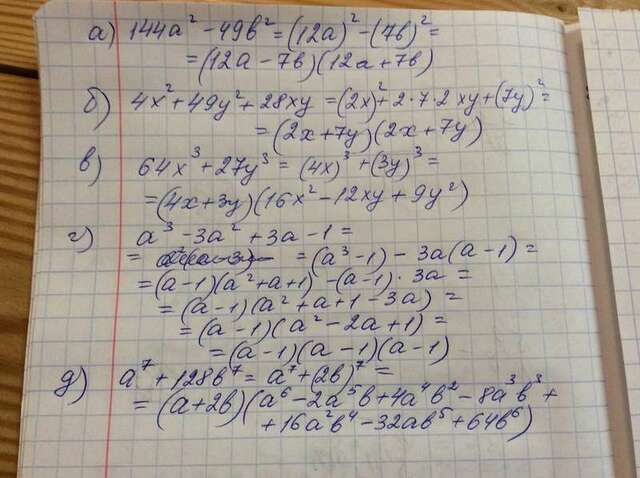 а) 144a² - 49b² = (12a)² - (7b)² =
= (12a - 7b)(12a + 7b)
б) 4x² + 49y² + 28xy = (2x)² + 2·7·2xy + (7y)² =
= (2x + 7y)(2x + 7y)
в) 64x³ + 27y³ = (4x)³ + (3y)³ =
= (4x + 3y)(16x² - 12xy + 9y²)
г) a³ - 3a² + 3a - 1 =
= = (a³ - 1) - 3a(a - 1) =
= (a - 1)(a² + a + 1) - (a - 1)·3a =
= (a - 1)(a² + a + 1 - 3a) =
= (a - 1)(a² - 2a + 1) =
= (a - 1)(a - 1)(a - 1)
д) a⁷ + 128b⁷ = a⁷ + (2b)⁷ =
= (a + 2b)(a⁶ - 2a⁵b + 4a⁴b² - 8a³b³ +
+ 16a²b⁴ - 32ab⁵ + 64b⁶)